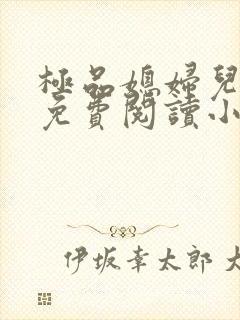 極品媳婦兒
免費閱讀小
伊坂幸太郎 大